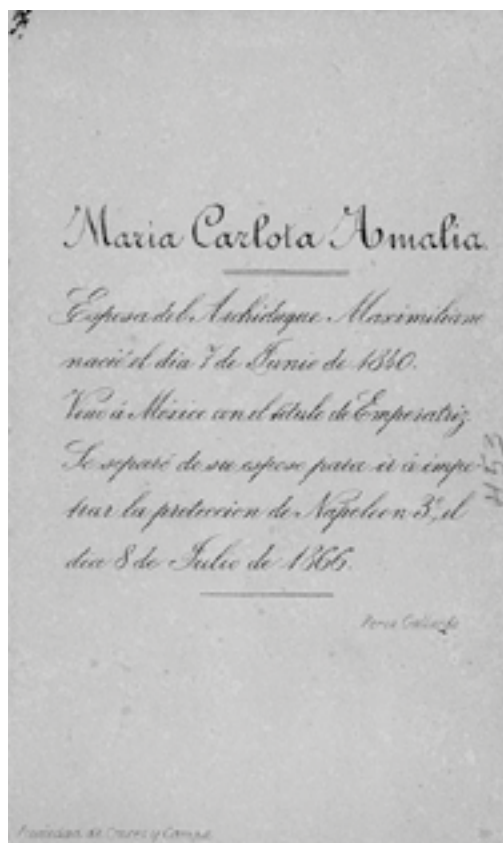 Maria Carlota Amalia.
Esposa del Archiduque Maximiliano
nació el dia 7 de Junio de 1840.
Vino á México con el título de Emperatriz
Se separó de su esposo para ir á impe-
trar la proteccion de Napoleon 3º, el
dia 8 de Julio de 1866.
Perez Gallardo
Propiedad de Cruces y Campa